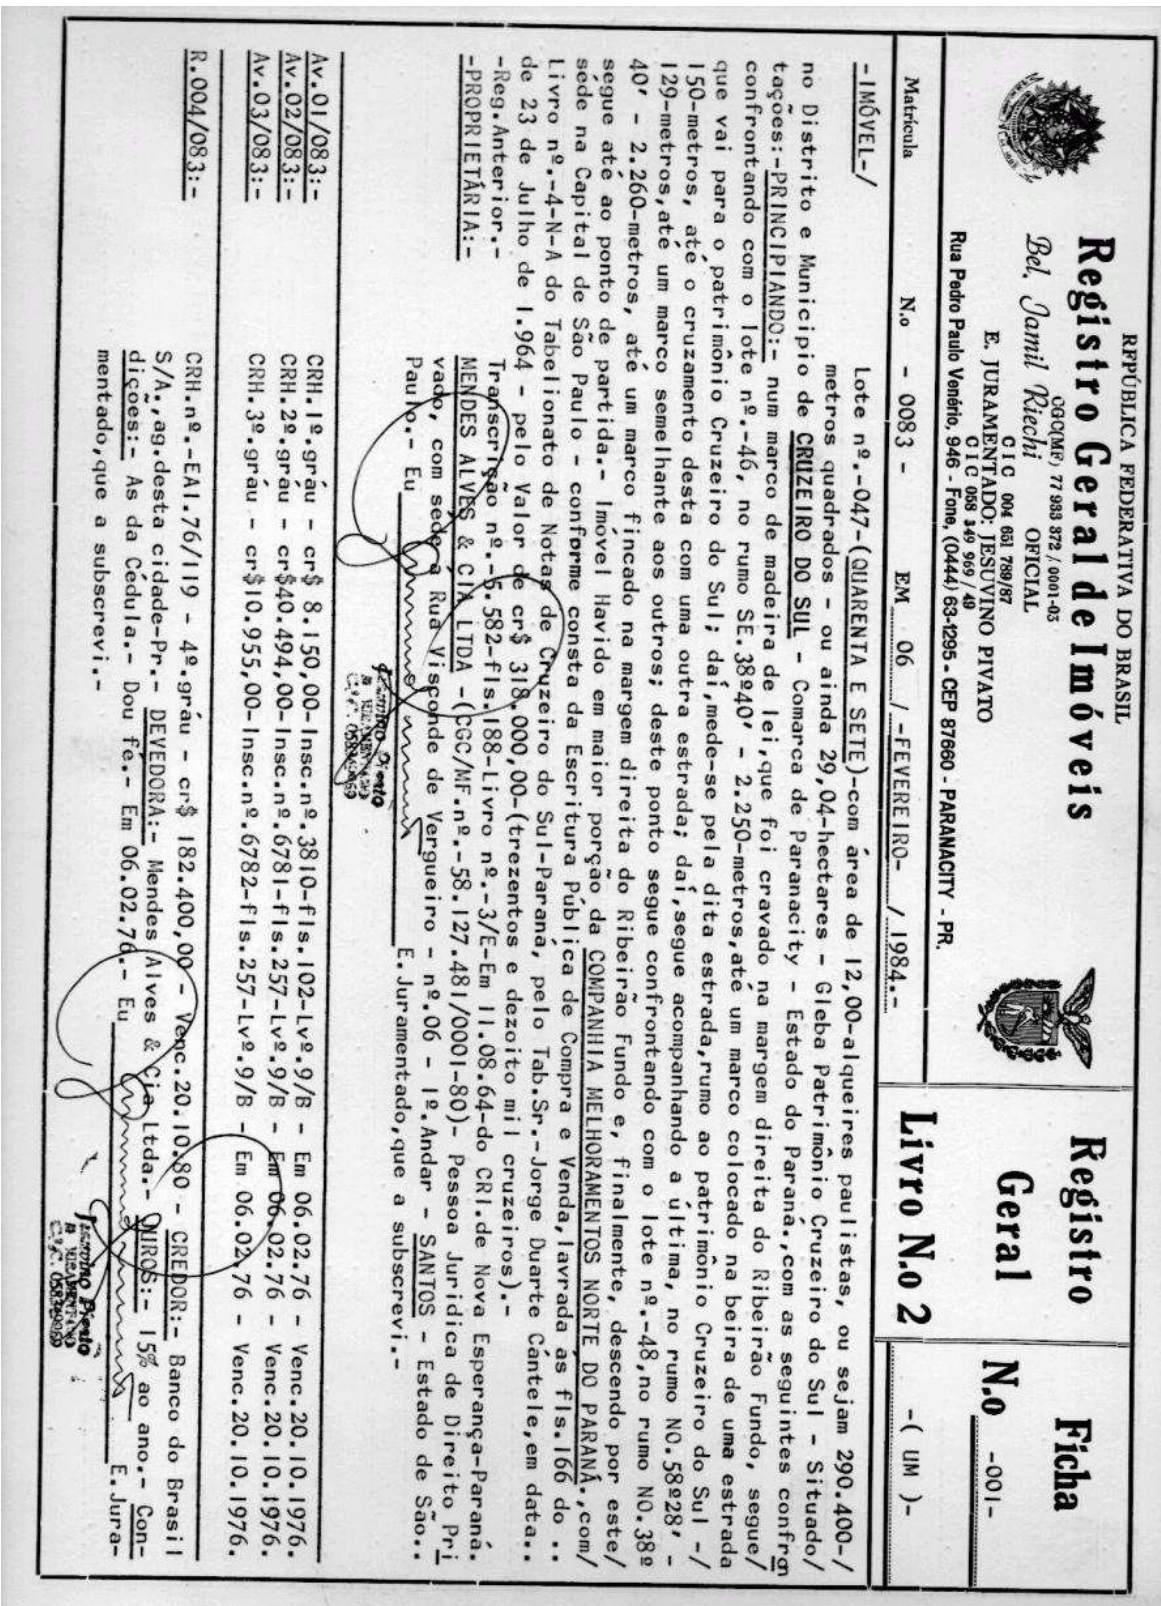 REPÚBLICA FEDERATIVA DO BRASIL
Registro Geral de Imóveis
CGC(MF) 77 933 372 / 0001-03
Bel. Jamil Riechi OFICIAL
CIC 004 651 789/87
E. JURAMENTADO: JESUVINO PIVATO
CIC 058 349 969 / 49
Rua Pedro Paulo Venério, 946 - Fone, (0444) 63-1295 - CEP 87660 - PARANACITY - PR.
Registro
Geral
Livro N.o 2
Ficha
N.o -001-
-( UM )-
Matrícula N.o - 0083 - EM 06 / -FEVEREIRO- / 1984.-
-IMÓVEL-/ Lote nº.-047-(QUARENTA E SETE)-com área de 12,00-alqueires paulistas, ou sejam 290.400-/
metros quadrados - ou ainda 29,04-hectares - Gleba Patrimônio Cruzeiro do Sul - Situado/
no Distrito e Municipio de CRUZEIRO DO SUL - Comarca de Paranacity - Estado do Paraná.,com as seguintes confron
tações:-PRINCIPIANDO:- num marco de madeira de lei,que foi cravado na margem direita do Ribeirão Fundo, segue/
confrontando com o lote nº.-46, no rumo SE.38º40' - 2.250-metros,até um marco colocado na beira de uma estrada
que vai para o patrimônio Cruzeiro do Sul; daí,mede-se pela dita estrada,rumo ao patrimônio Cruzeiro do Sul -/
150-metros, até o cruzamento desta com uma outra estrada; daí,segue acompanhando a última, no rumo NO.58º28' -
129-metros,até um marco semelhante aos outros; deste ponto segue confrontando com o lote nº.-48,no rumo NO.38º
40' - 2.260-metros, até um marco fincado na margem direita do Ribeirão Fundo e, finalmente, descendo por este/
segue até ao ponto de partida.- Imóvel Havido em maior porção da COMPANHIA MELHORAMENTOS NORTE DO PARANÁ.,com/
sede na Capital de São Paulo - conforme consta da Escritura Pública de Compra e Venda,lavrada às fls.166 do ..
Livro nº.-4-N-A do Tabelionato de Notas de Cruzeiro do Sul-Paraná, pelo Tab.Sr.-Jorge Duarte Cântele,em data..
de 23 de Julho de 1.964 - pelo Valor de cr$ 318.000,00-(trezentos e dezoito mil cruzeiros).-
-Reg.Anterior.- Transcrição nº.-5.582-fls.188-Livro nº.-3/E-Em 11.08.64-do CRI.de Nova Esperança-Paraná.
-PROPRIETÁRIA:- MENDES ALVES & CIA LTDA -(CGC/MF.nº.-58.127.481/0001-80)- Pessoa Juridica de Direito Pri
vado, com sede a Rua Visconde de Vergueiro - nº.06 - 1º.Andar - SANTOS - Estado de São..
Paulo.- Eu E.Juramentado,que a subscrevi.-
Av.01/083:- CRH.1º.gráu - cr$ 8.150,00-Insc.nº.3810-fls.102-Lvº.9/B - Em 06.02.76 - Venc.20.10.1976.
Av.02/083:- CRH.2º.gráu - cr$40.494,00-Insc.nº.6781-fls.257-Lvº.9/B - Em 06.02.76 - Venc.20.10.1976.
Av.03/083:- CRH.3º.gráu - cr$10.955,00-Insc.nº.6782-fls.257-Lvº.9/B - Em 06.02.76 - Venc.20.10.1976.
R.004/083:- CRH.nº.-EAI.76/119 - 4º.gráu - cr$ 182.400,00 - Venc.20.10.80 - CREDOR:- Banco do Brasil
S/A.,ag.desta cidade-Pr.- DEVEDORA:- Mendes Alves & Cia Ltda.- JUROS:- 15% ao ano.- Con-
diçoes:- As da Cédula.- Dou fé.- Em 06.02.76.- Eu E.Jura-
mentado,que a subscrevi.-